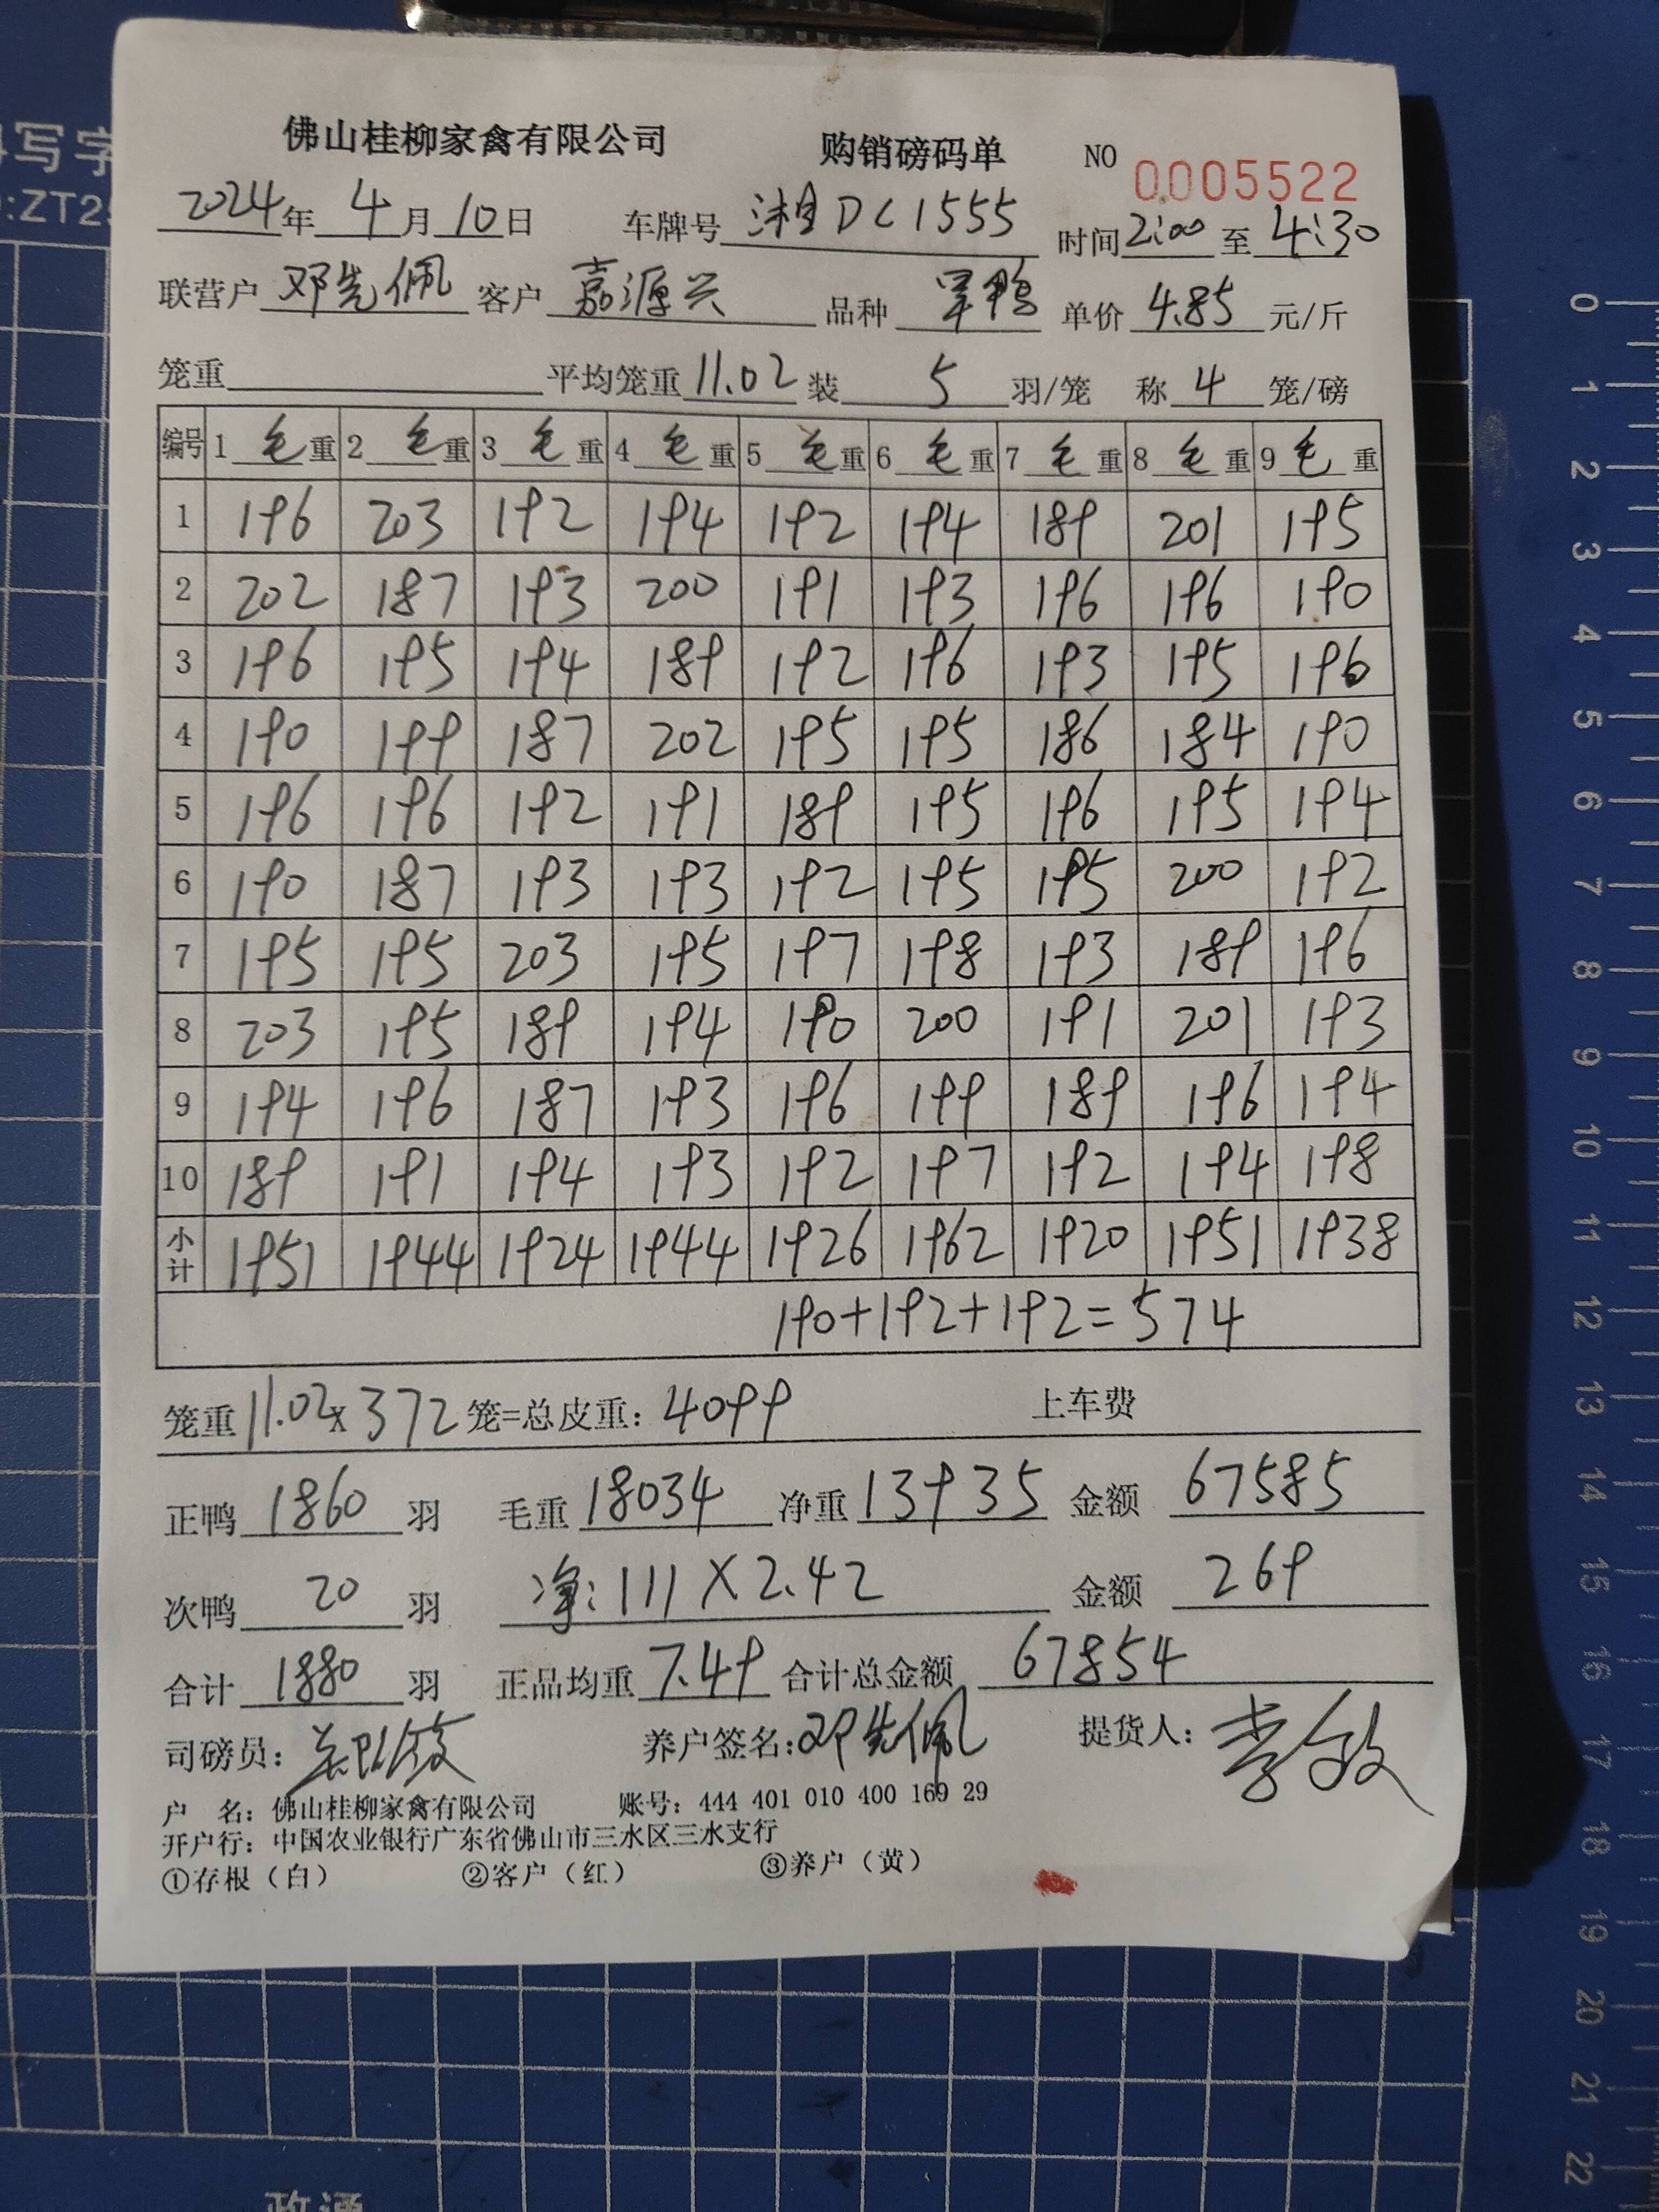 佛山桂柳家禽有限公司 购销磅码单 NO 0005522
2024年4月10日 车牌号 湘DC1555 时间2:00至4:30
联营户 邓先佩 客户 嘉源兴 品种 旱鸭 单价 4.85 元/斤
笼重 平均笼重 11.02 装 5 羽/笼 称 4 笼/磅
编号 1 毛重 2 毛重 3 毛重 4 毛重 5 毛重 6 毛重 7 毛重 8 毛重 9 毛重
1 196 203 192 194 192 194 189 201 195
2 202 187 193 200 191 193 196 196 190
3 196 195 194 189 192 196 193 195 196
4 190 199 187 202 195 195 186 184 190
5 196 196 192 191 189 195 196 195 194
6 190 187 193 193 192 195 195 200 192
7 195 195 203 195 197 198 193 189 196
8 203 195 189 194 190 200 191 201 193
9 194 196 187 193 196 199 189 196 194
10 189 191 194 193 192 197 192 194 198
小计 1951 1944 1924 1944 1926 1962 1920 1951 1938
190+192+192=574
笼重 11.02x372 笼=总皮重: 4099 上车费
正鸭 1860 羽 毛重 18034 净重 13935 金额 67585
次鸭 20 羽 净:111X2.42 金额 269
合计 1880 羽 正品均重 7.49 合计总金额 67854
司磅员: 养户签名:邓先佩 提货人: 李敏
户 名: 佛山桂柳家禽有限公司 账号: 444 401 010 400 169 29
开户行: 中国农业银行广东省佛山市三水区三水支行
①存根（白） ②客户（红） ③养户（黄）
写字
:ZT2
0
1
2
3
4
5
6
7
8
9
10
11
12
13
14
15
16
17
18
19
20
21
22